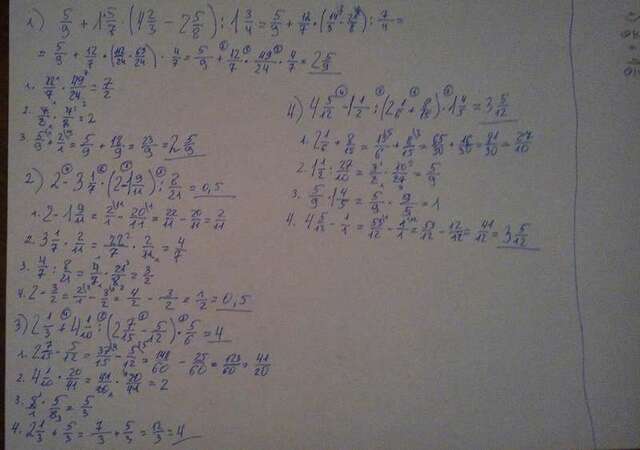 1) 5/9 + 1 5/7 · (4 2/3 − 2 5/8) : 1 3/4 = 5/9 + 12/7 · (14/3 · 21/8) : 7/4 =
= 5/9 + 12/7 · (112/24 − 63/24) · 4/7 = 5/9 + 12/7 · 49/24 · 4/7 = 2 5/9
1. 12/7 · 49/24 = 7/2
2. 7/2 · 4/7 = 2
3. 5/9 + 2/1 = 5/9 + 18/9 = 23/9 = 2 5/9
2) 2 − 3 1/7 · (2 − 1 9/11) : 8/21 = 0,5
1. 2 − 1 9/11 = 2/1 − 20/11 = 22/11 − 20/11 = 2/11
2. 3 1/7 · 2/11 = 22/7 · 2/11 = 4/7
3. 4/7 : 8/21 = 4/7 · 21/8 = 3/2
4. 2 − 3/2 = 2/1 − 3/2 = 4/2 − 3/2 = 1/2 = 0,5
3) 2 1/3 + 4 1/10 : (2 7/15 − 5/12) · 5/6 = 4
1. 2 7/15 − 5/12 = 37/15 − 5/12 = 148/60 − 25/60 = 123/60 = 41/20
2. 4 1/10 · 20/41 = 41/10 · 20/41 = 2
3. · 5/6 = 5/3
4. 2 1/3 + 5/3 = 7/3 + 5/3 = 12/3 = 4
4) 4 5/12 − 1 1/2 : (2 1/6 + 8/15) · 1 4/5 = 3 5/12
1. 2 1/6 + 8/15 = 13/6 + 8/15 = 65/30 + 16/30 = 81/30 = 27/10
2. 1 1/2 : 27/10 = 3/2 · 10/27 = 5/9
3. 5/9 · 1 4/5 = 5/9 · 9/5 = 1
4. 4 5/12 − 1/1 = 53/12 − 1/1 = 53/12 − 12/12 = 41/12 = 3 5/12